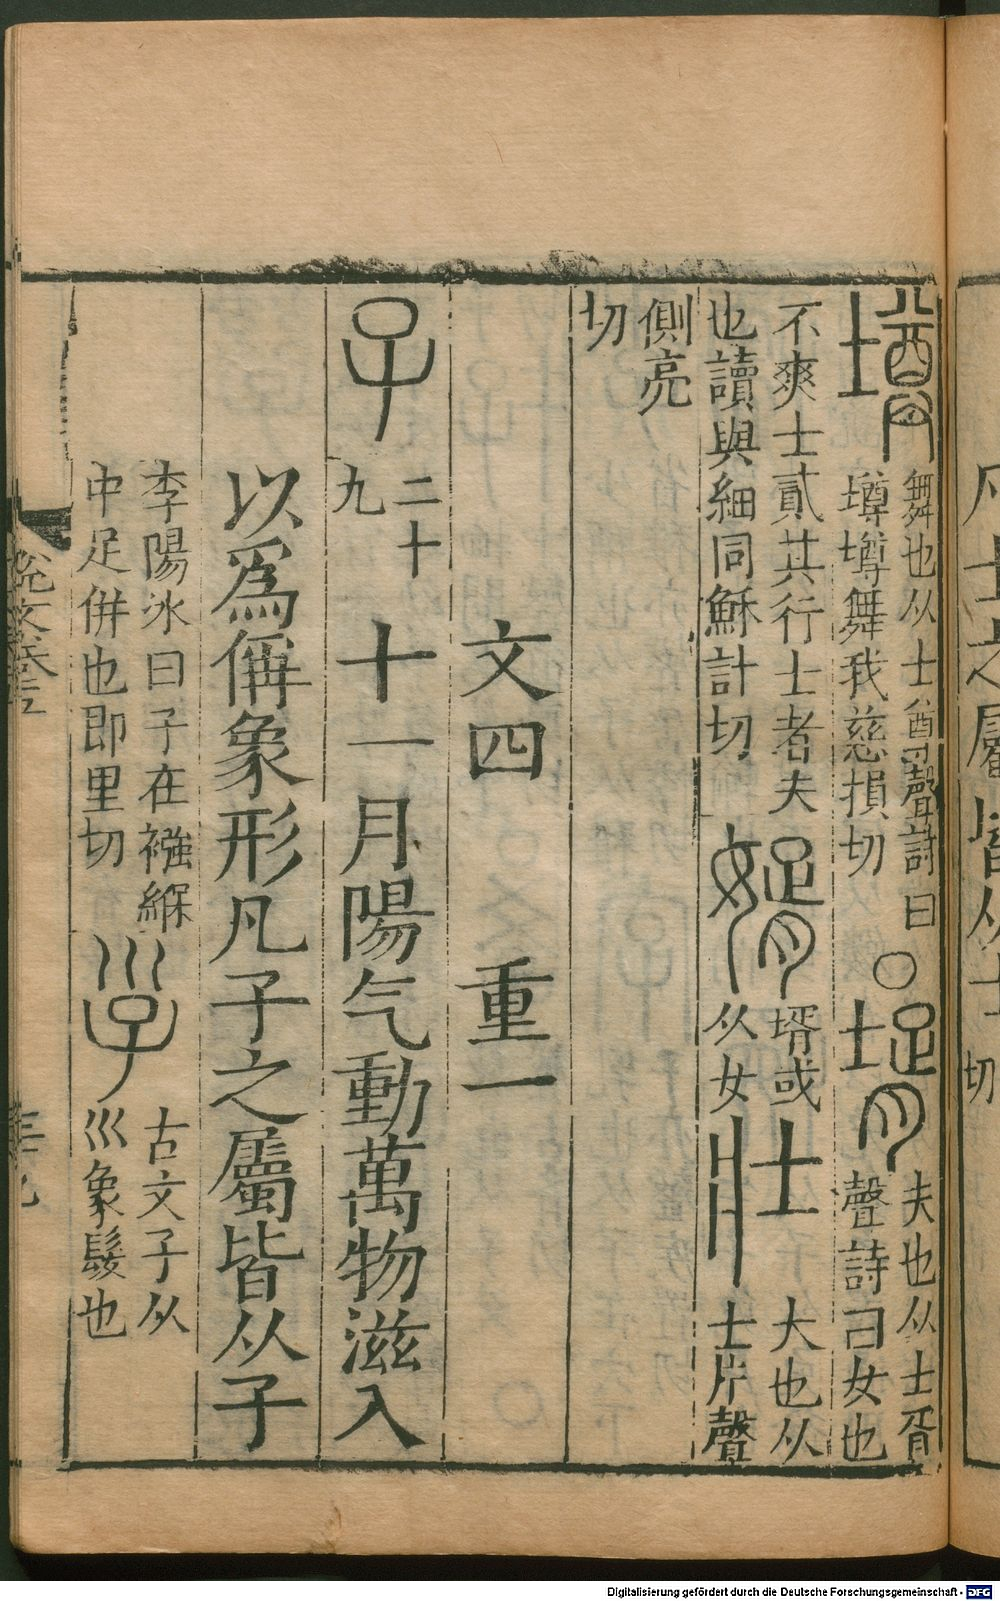 墫
舞也从士尊聲詩曰
墫墫舞我慈損切
○
壻
夫也从士胥
聲詩曰女也
不爽士貳其行士者夫
也讀與細同穌計切
婿
壻或
从女
壯
大也从
士爿聲
側亮
切
文四 重一
子
二十
九
十一月陽气動萬物滋入
以爲偁象形凡子之屬皆从子
李陽冰曰子在襁緥
中足併也即里切
𡿹
古文子从
巛象髮也
Digitalisierung gefördert durch die Deutsche Forschungsgemeinschaft - DFG